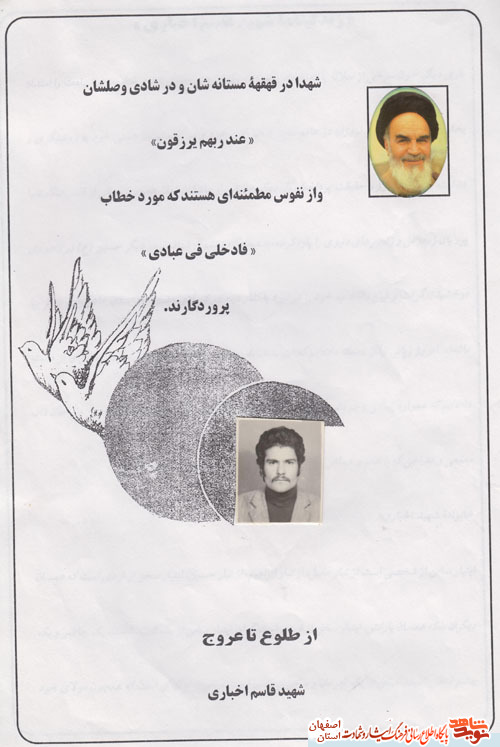 شهدا در قهقههٔ مستانه شان و در شادی وصلشان
«عند ربهم یرزقون»
واز نفوس مطمئنه‌ای هستند که مورد خطاب
«فادخلی فی عبادی»
پروردگارند.
از طلوع تا عروج
شهید قاسم اخباری
نوید شاهد
پایگاه اطلاع رسانی فرهنگ ایثار و شهادت
استان اصفهان